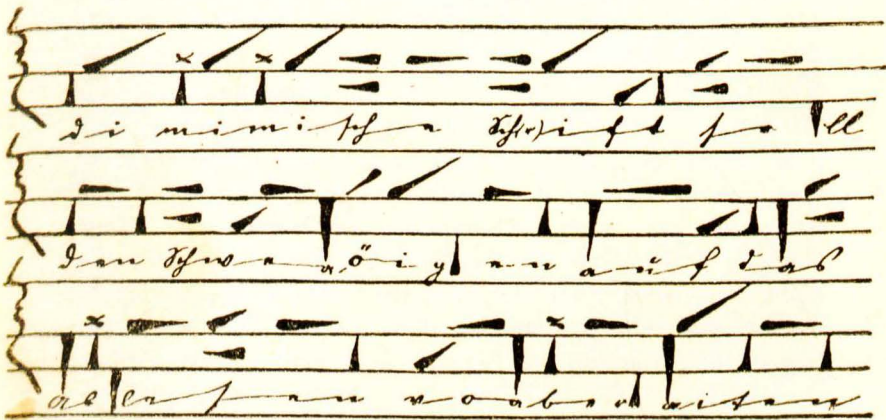 di mimische Sch(r)ift soll
den Schwea,öigen auf das
ablesen voaberaiten